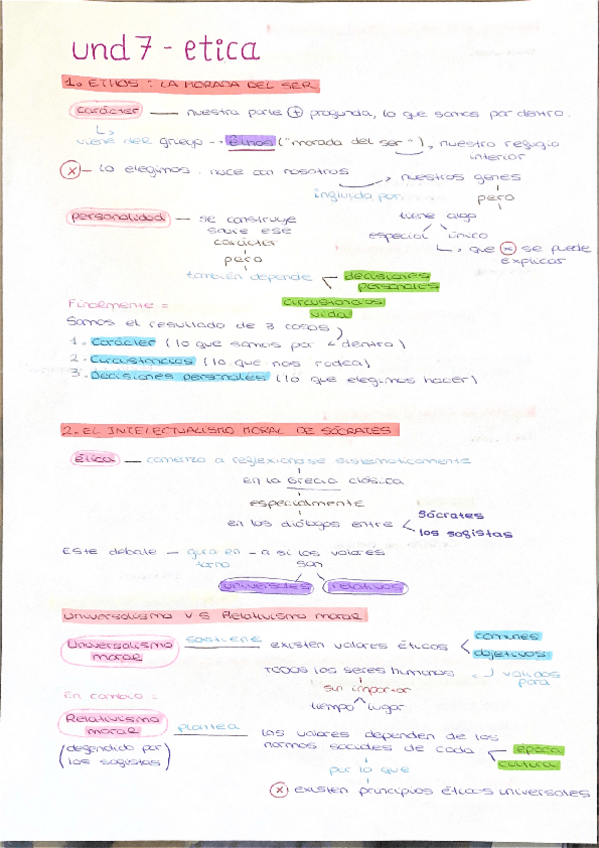 und 7 - etica
1. ETHOS: LA MORADA DEL SER
carácter — nuestra parte + profunda, lo que somos por dentro.
viene del griego --> êthos ("morada del ser"), nuestro refugio
interior
x - lo elegimos. nace con nosotros
nuestros genes
influida por
pero
personalidad — se construye
sobre ese
carácter
tiene algo
especial único
que x se puede
explicar
pero
también depende
decisiones
personales
circustancias
vida
Finalmente =
Somos el resultado de 3 cosas
1. Carácter (lo que somos por dentro)
2. Circustancias (lo que nos rodea)
3. Decisiones personales (lo que elegimos hacer)
2. EL INTELECTUALISMO MORAL DE SÓCRATES
ética — comenzo a reflexionarse sistematicamente
en la Grecia clásica
especialmente
en los diálogos entre
Sócrates
los sofistas
Este debate — gira en - a si los valores
torno
son
universales relativos
Universalismo VS Relativismo moral
Universalismo
moral
sostiene
existen valores éticos
comunes
objetivos
todos los seres humanos
validos
para
sin importar
tiempo lugar
En cambio =
Relativismo
moral
plantea
(defendido por
los sofistas)
los valores dependen de las
normas sociales de cada
época
cultura
por lo que
x existen principios éticos universales